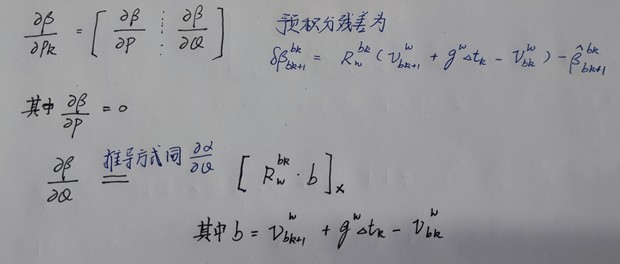 ∂β/∂Pk = [ ∂β/∂P ⋮ ∂β/∂Q ]
预积分残差为
δβ_{bk+1}^{bk} = R_w^{bk}(v_{bk+1}^w + g^wΔtk − v_{bk}^w) − β̂_{bk+1}^{bk}
其中 ∂β/∂P = 0
∂β/∂Q = 推导方式同 ∂α/∂Q [R_w^{bk} · b]_×
其中 b = v_{bk+1}^w + g^wΔtk − v_{bk}^w